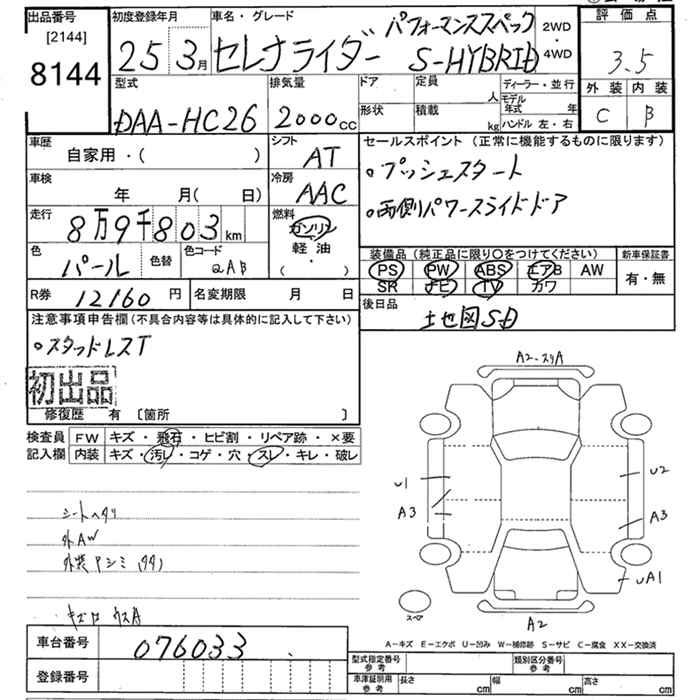 出品番号
[2144]
8144
初度登録年月
25 3月
車名・グレード
パフォーマンススペック
セレナライダー S-HYBRID
2WD
・
4WD
評価点
3.5
外装 内装
C B
型式
DAA-HC26
排気量
2000cc
ドア
定員
人
形状
積載
kg
ディーラー・並行
モデル年式 年
ハンドル 左・右
車歴
自家用・( )
シフト
AT
車検
年 月( 日)
冷房
AAC
走行
8万9千803km
燃料
ガソリン
軽油
・
( )
色
パール
色替
色コード
QAB
R券
12160円
名変期限 月 日
セールスポイント (正常に機能するものに限ります)
・プッシュスタート
・両側パワースライドドア
装備品 (純正品に限り〇をつけてください)
PS PW ABS エアB AW
SR ナビ TV カワ
新車保証書
有・無
後日品
土地図SD
注意事項申告欄(不具合内容等は具体的に記入して下さい)
・スタッドレスT
初出品
修復歴 有 [箇所 ]
検査員記入欄
FW キズ・飛石・ヒビ割・リペア跡・×要
内装 キズ・汚レ・コゲ・穴・スレ・キレ・破レ
シートヘタリ
外AW
外装アシミ(タタ)
A2-スリA
U1
A3
U2
A3
UA1
スペア
A2
A-キズ E-エクボ U-凹み W-補修跡 S-サビ C-腐食 XX-交換済
車台番号
076033
登録番号
型式指定番号 参考
類別区分番号 参考
車庫証明用 参考
長さ cm
幅 cm
高さ cm